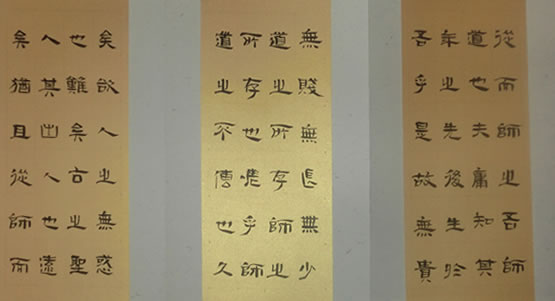 從而師之吾師
道也夫庸知其
年之先後生於
吾乎是故無貴
無賤無長無少
道之所存師之
所存也嗟乎師
道之不傳也久
矣欲人之無惑
也難矣古之聖
人其出人也遠
矣猶且從師而